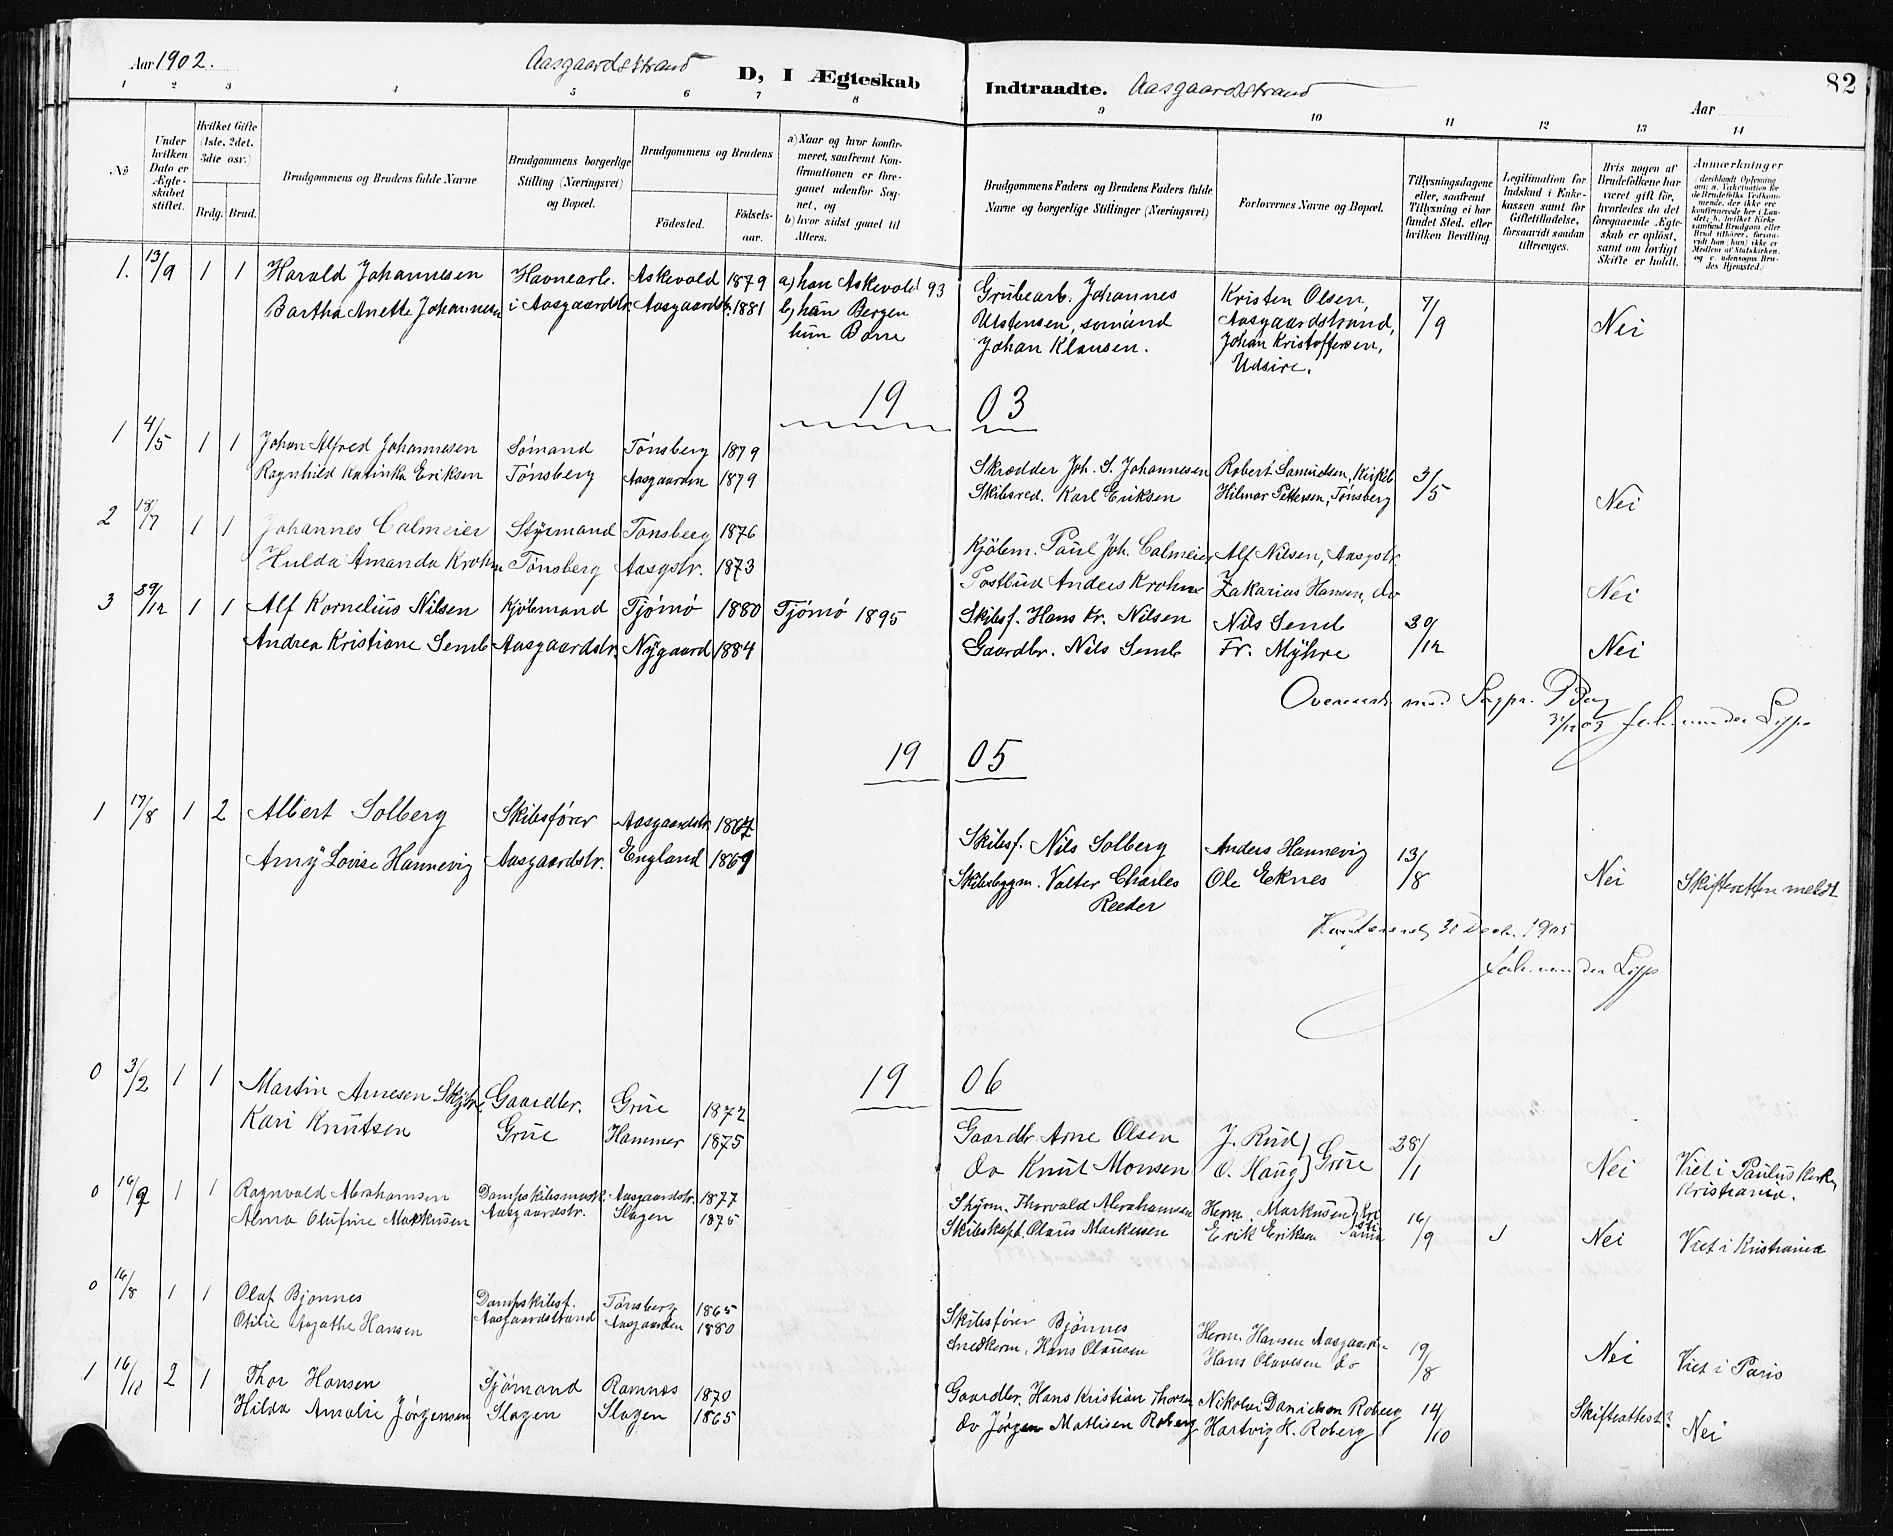 Aar 1902.
Aasgaardsstrand
D, I Ægteskab
Indtraadte.
Aasgaardsstrand
Aar
82
1 2 3 4 5 6 7 8 9 10 11 12 13 14
No
Under hvilken Dato er Ægteskabet stiftet.
Hvilket Gifte (1ste, 2det, 3die osv.)
Brdg. Brud.
Brudgommens og Brudens fulde Navne
Brudgommens borgerlige Stilling (Næringsvei) og Bopæl.
Brudgommens og Brudens
Fødested.
Fødselsaar.
a) Naar og hvor konfirmeret, saafremt Konfirmationen er foregaaet udenfor Sognet, og
b) hvor sidst gaaet til Alters.
Brudgommens Faders og Brudens Faders fulde Navne og borgerlige Stillinger (Næringsvei)
Forlovernes Navne og Bopæl.
Tillysningsdagene eller, saafremt Tillysning ei har fundet Sted, efter hvilken Bevilling.
Legitimation for Indskud i Enkekassen samt for Giftetilladelse, forsaavidt saadan tiltrænges.
Hvis nogen af Brudefolkene har været gift før, hvorledes da det foregaaende Ægteskab er opløst, samt om lovligt Skifte er holdt.
Anmærkninger
(deriblandt Oplysning om: a. Vakcination for de Brudefolks Vedkommende, der ikke ere konfirmerede her i Landet; b. hvilket Kirkesamfund Brudgom eller Brud tilhører, forsaavidt han (hun) ikke er Medlem af Statskirken, og c. udensogns Brudes Hjemsted.)
1. 13/9 1 1 Harald Johannesen Havnearb. Askevold 1879 a) han Askevold 93 Grubearb. Johannes Kristen Olsen, 7/9 Nei
Bartha Anette Johannesen i Aasgaardstr. Aasgaardstr. 1881 b) han Bergen Ulstensen, sømand Aasgaardstrand,
hun Borre Johan Klausen. Johan Kristoffersen,
Udsire.
19 03
1 4/5 1 1 Johan Alfred Johannesen Sømand Tønsberg 1879 Skrædder Joh. S. Johannesen Robert Samuelsen, Kirkeb. 3/5 Nei
Ragnhild Katinka Eriksen Tønsberg Aasgaarden 1879 Skibsred. Karl Eriksen Hilmar Pettersen, Tønsberg
2 18/7 1 1 Johannes Calmeier Styrmand Tønsberg 1876 Kjøbm. Paul Joh. Calmeier Alf Nilsen, Aasgstr.
Hulda Amanda Krohn Tønsberg Aasgstr. 1873 Postbud Anders Krohn Zakarias Hansen, do Nei
3 /12 1 1 Alf Kornelius Nilsen Kjøbmand Tjømø 1880 Tjømø 1895 Skibsf. Hans Kr. Nilsen Nils Semb 30/12 Nei
Andrea Kristiane Semb Aasgaardstr. Nygaard 1884 Gaardbr. Nils Semb Fr. Myhre
31/12 03
19 05
1 17/8 1 2 Albert Solberg Skibsfører Aasgaardstr. 1867 Skibsf. Nils Solberg Anders Hannevig 13/8 Nei Skifteretten meldt
Amy Lovise Hannevig Aasgaardstr. England 1869 Skibsbygm. Valter Charles Ole Eknes
Reeder
31 Decb. 1905
19 06
0 3/2 1 1 Martin Arnesen Gaardbr. Grue 1872 Gaardbr. Arne Olsen J. Rud 28/1 Nei Viet i Paulus kirke,
Kari Knutsen Grue Hammer 1875 do Knut Monsen O. Haug } Grue Kristiania.
0 16/9 1 1 Ragnvald Abrahamsen Dampskibsmask. Aasgaardstr. 1877 Styrm. Thorvald Abrahamsen Herm. Markusen } Kri 16/9 Nei Viet i Kristiania
Alma Olufine Markusen Aasgaardstr. Slagen 1875 Skibskapt. Olaus Markusen Erik Eriksen stiania
0 16/8 1 1 Olaf Bjønnes Dampskibsf. Tønsberg 1865 Skibsfører Bjønnes Herm. Hansen Aasgaard 19/8 Nei Viet i Paris
Otilie Agathe Hansen Aasgaardstrand Aasgaarden 1880 Snedkerm. Hans Olausen Hans Olavesen do
1 16/10 2 1 Thor Hansen Sjømand Ramnæs 1870 Gaardbr. Hans Kristian Thorsen Nikolai Danielsen Roberg 14/10 Skifteattest? Nei
Hilda Amalie Jørgensen Slagen Slagen 1865 do Jørgen Mathisen Roberg Hartvig H. Roberg